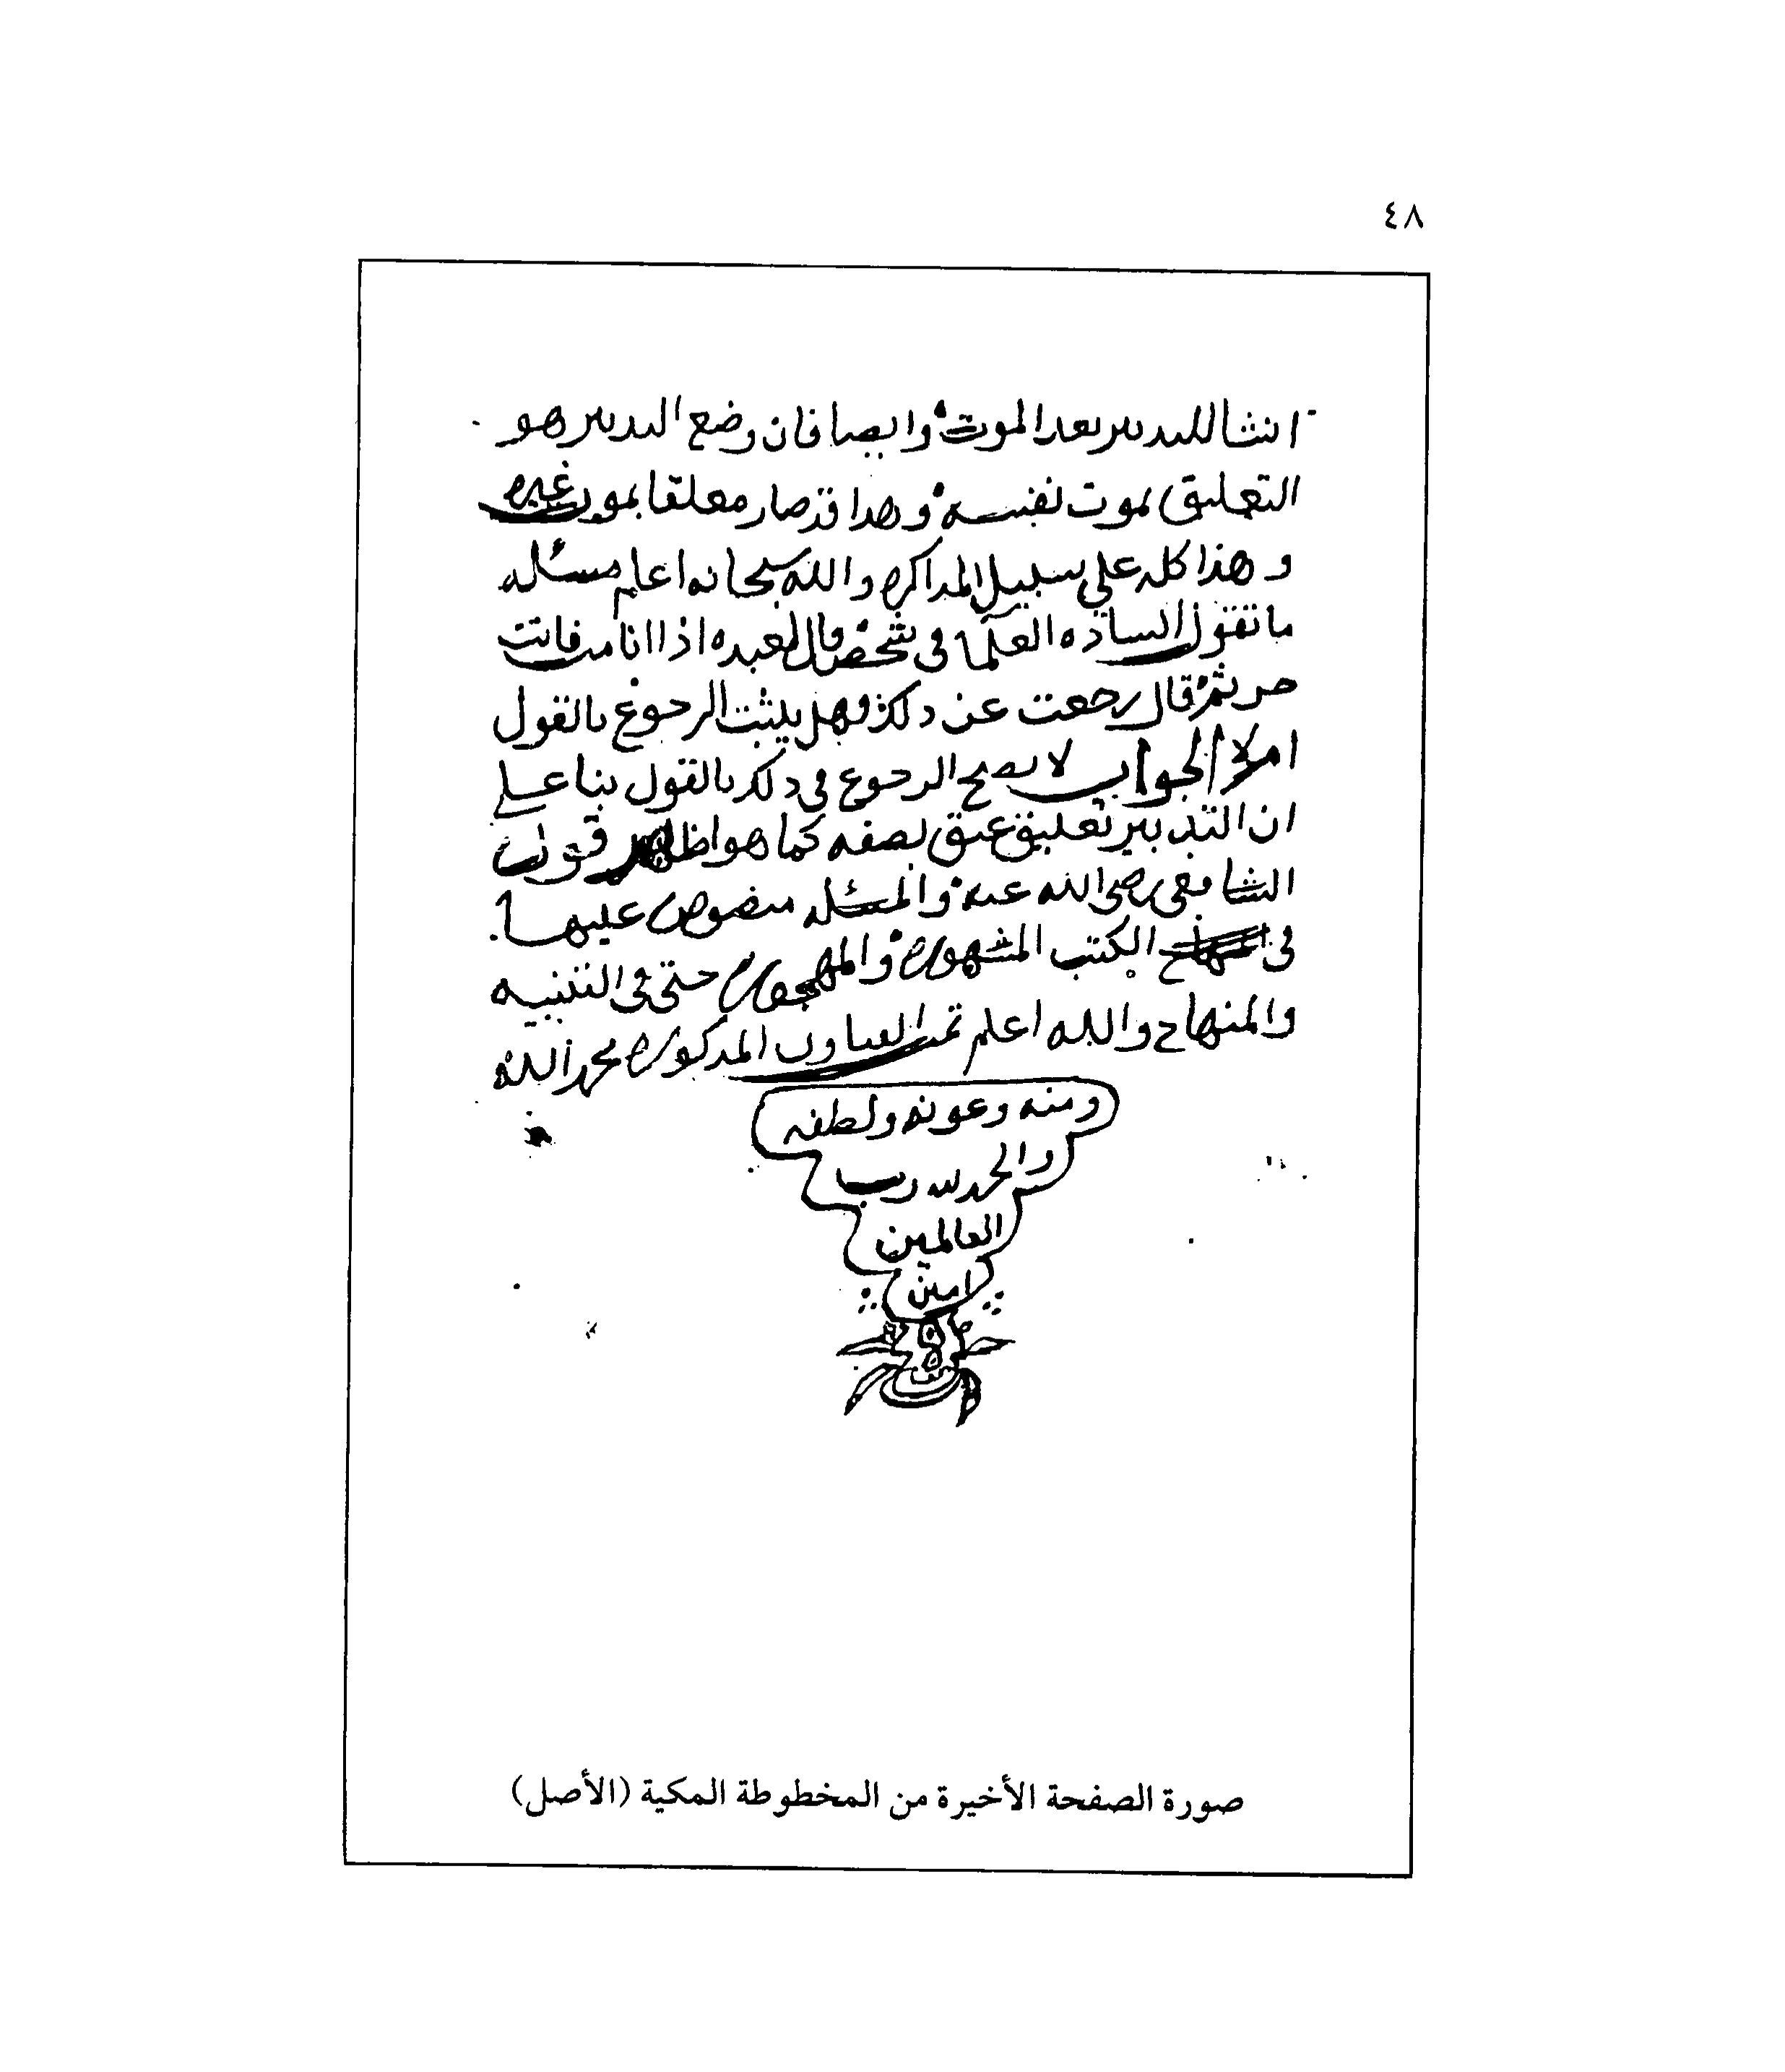 ٤٨
انشا للتدبير بعد الموت وايضا فان وضع التدبير هو
التعليق بموت نفسه وهذا قد صار معلقا بموت غيره
وهذا كله علي سبيل المذاكره والله سبحانه اعلم مسئله
ما تقول الساده العلما في شخص قال لعبده اذا انا مت فانت
حر ثم قال رجعت عن ذلك وهل يثبت الرجوع بالقول
ام لا الجواب لا يصح الرجوع في ذلك بالقول بنا علي
ان التدبير تعليق عتق بصفه كما هو اظهر قولي
الشافعي رضي الله عنه والمسئله منصوص عليها
في الكتب المشهوره و حتى في التنبيه
والمنهاج والله اعلم تمت الفتاوى المذكوره بحمد الله
ومنه وعونه ولطفه
والحمد لله رب
العالمين
امين
صورة الصفحة الأخيرة من المخطوطة المكية (الأصل)